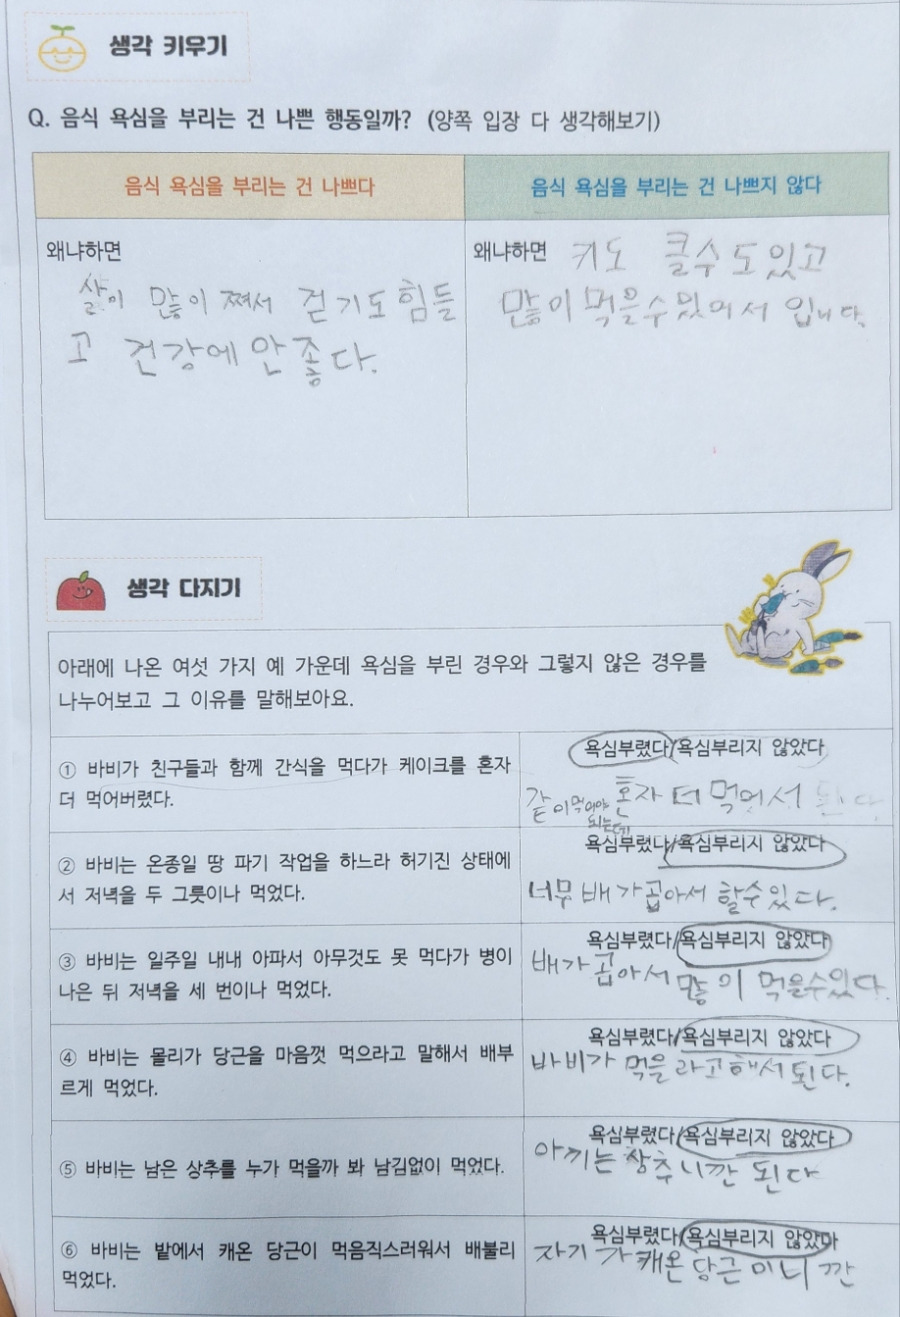 생각 키우기
Q. 음식 욕심을 부리는 건 나쁜 행동일까? (양쪽 입장 다 생각해보기)
음식 욕심을 부리는 건 나쁘다
음식 욕심을 부리는 건 나쁘지 않다
왜냐하면
살이 많이 쪄서 걷기도 힘들
고 건강에 안 좋다.
왜냐하면 키도 클수도있고
많이 먹을수있어서 입니다.
생각 다지기
아래에 나온 여섯 가지 예 가운데 욕심을 부린 경우와 그렇지 않은 경우를
나누어보고 그 이유를 말해보아요.
① 바비가 친구들과 함께 간식을 먹다가 케이크를 혼자
더 먹어버렸다.
욕심부렸다/욕심부리지 않았다
같이먹어야 혼자 더 먹어서 된다
되는데
② 바비는 온종일 땅 파기 작업을 하느라 허기진 상태에
서 저녁을 두 그릇이나 먹었다.
욕심부렸다/욕심부리지 않았다
너무 배가곱아서 할수있다.
③ 바비는 일주일 내내 아파서 아무것도 못 먹다가 병이
나은 뒤 저녁을 세 번이나 먹었다.
욕심부렸다/욕심부리지 않았다
배가곱아서 많이 먹을수있다.
④ 바비는 몰리가 당근을 마음껏 먹으라고 말해서 배부
르게 먹었다.
욕심부렸다/욕심부리지 않았다
바비가 먹을라고해서된다.
⑤ 바비는 남은 상추를 누가 먹을까 봐 남김없이 먹었다.
욕심부렸다/욕심부리지 않았다
아끼는 상추니깐 된다
⑥ 바비는 밭에서 캐온 당근이 먹음직스러워서 배불리
먹었다.
욕심부렸다/욕심부리지 않았다
자기가캐온당근이니깐